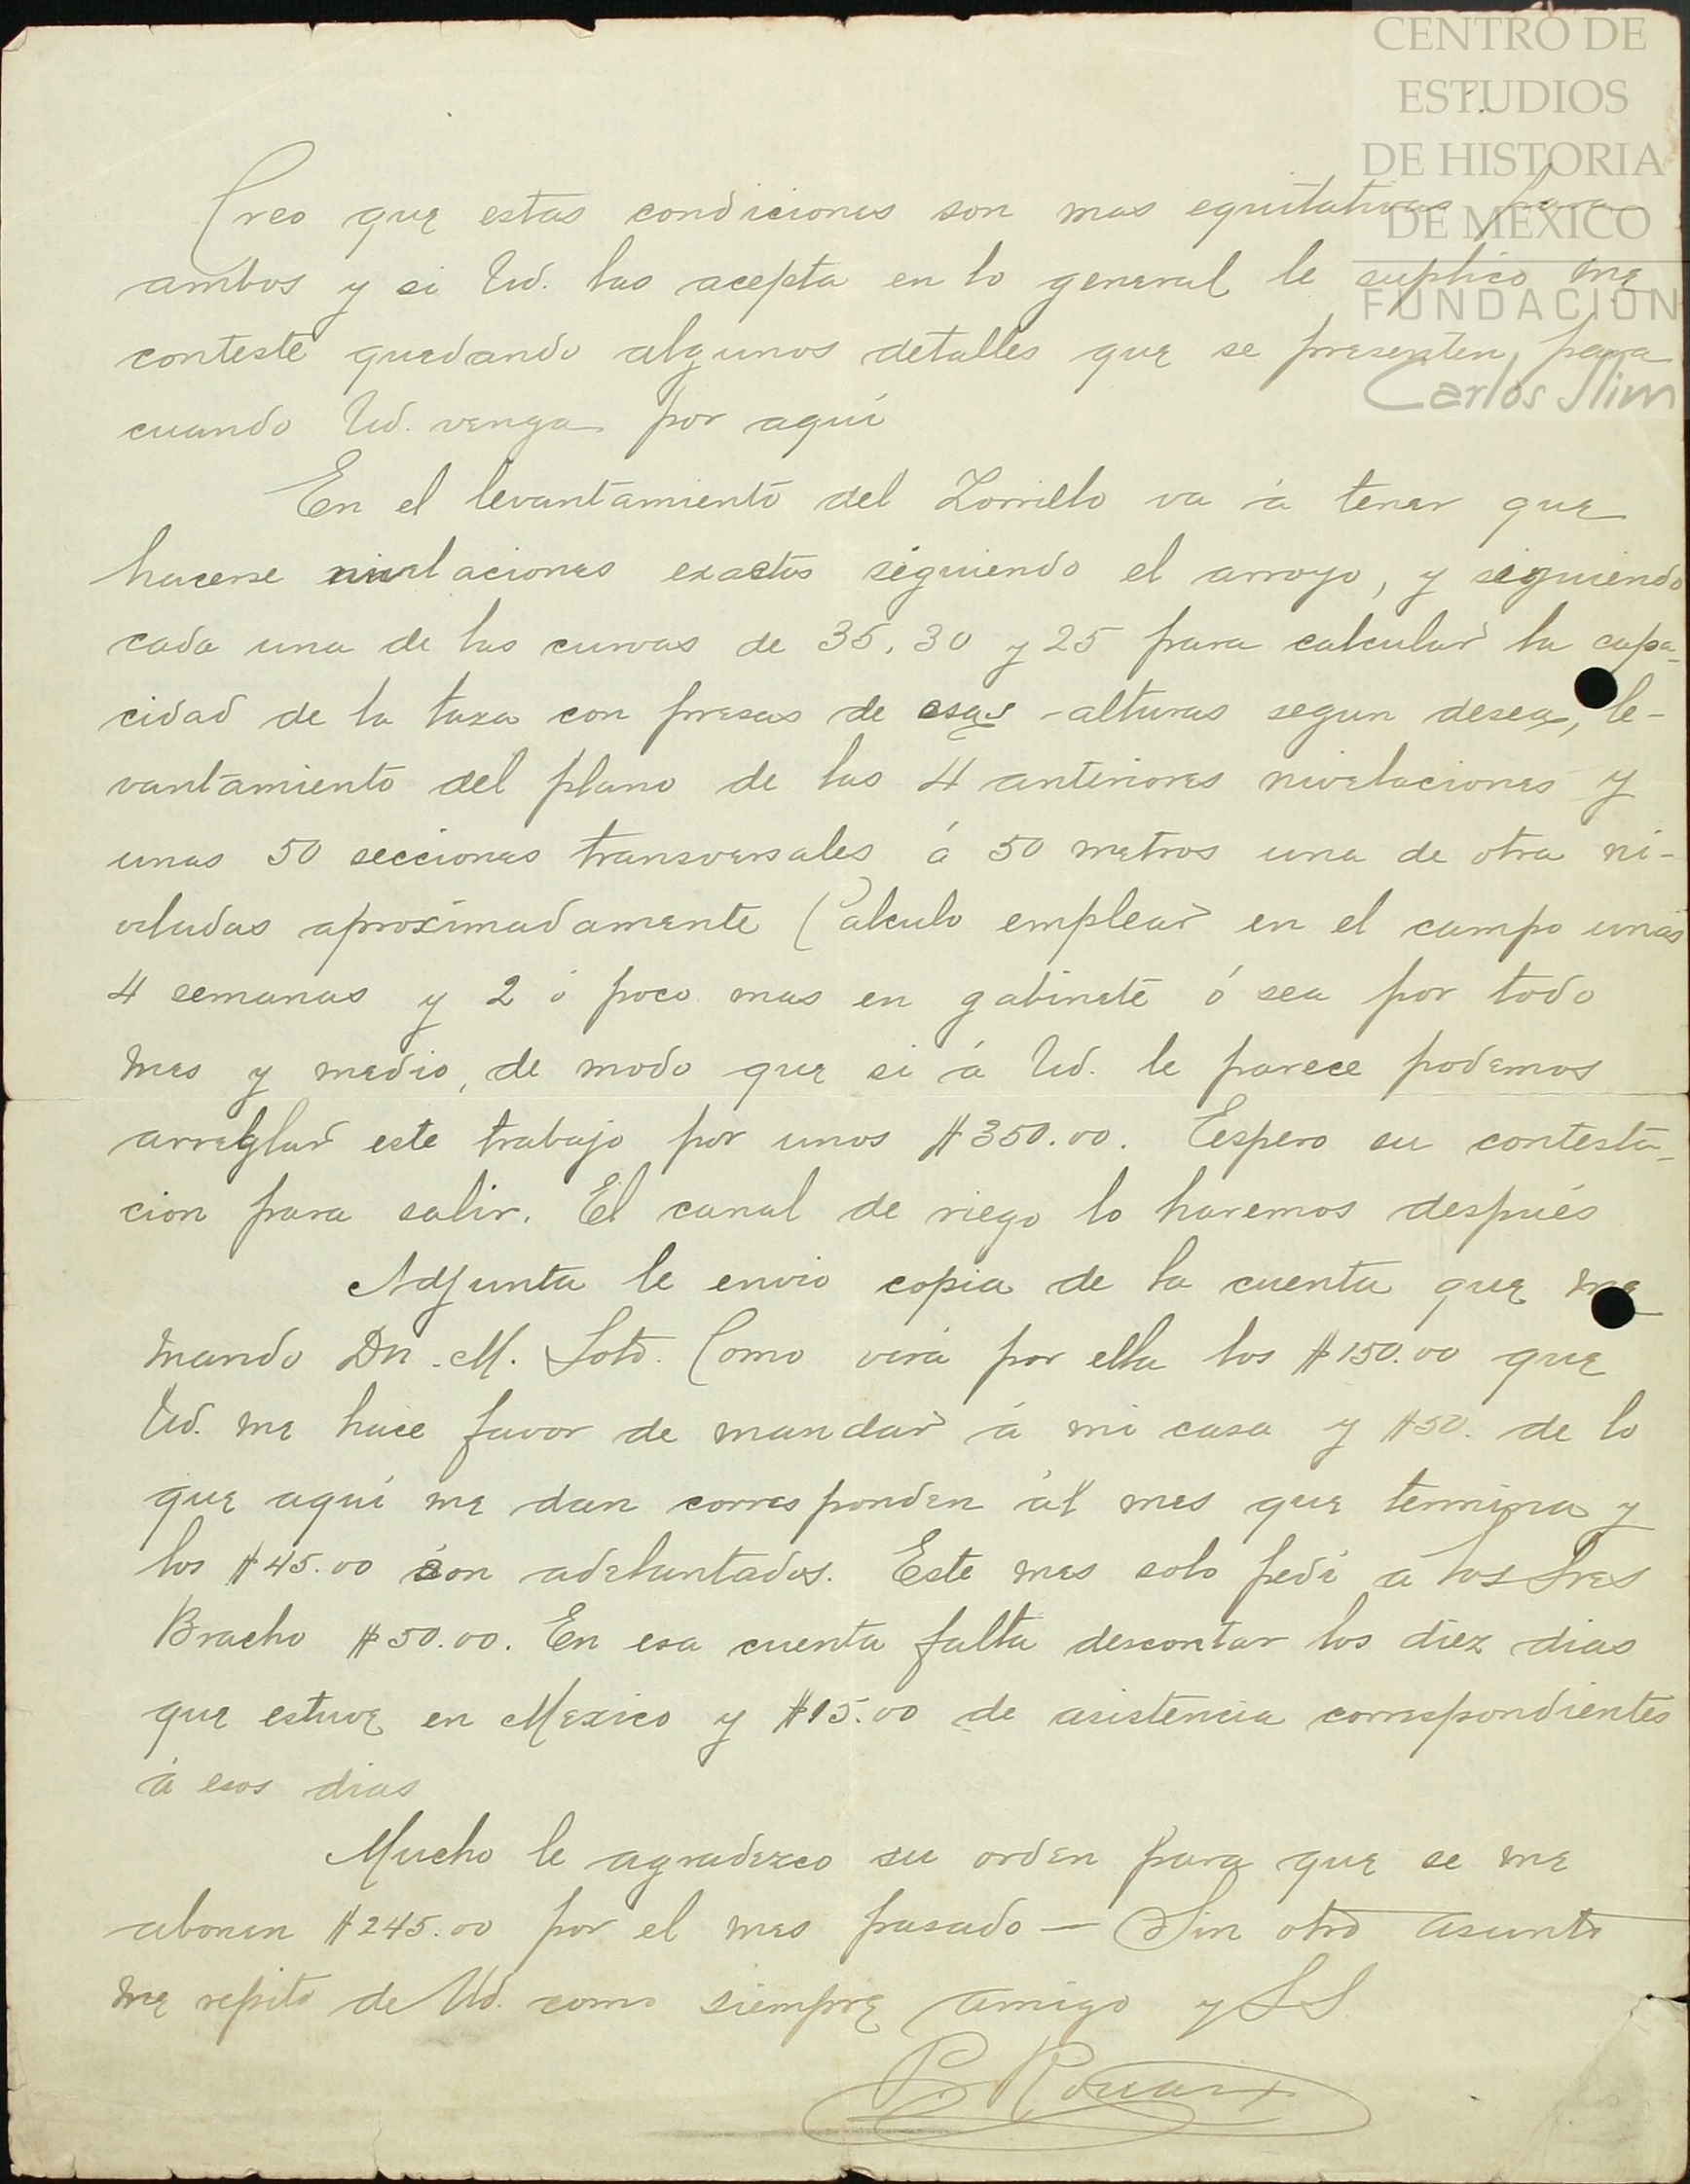 CENTRO DE
ESTUDIOS
DE HISTORIA
DE MÉXICO
FUNDACIÓN
Carlos Slim
Creo que estas condiciones son mas equitativas para
ambos y si Ud. las acepta en lo general le suplico me
conteste quedando algunos detalles que se presenten, para
cuando Ud. venga por aquí
En el levantamiento del Zorrillo va á tener que
hacerse nivelaciones exactas siguiendo el arroyo, y siguiendo
cada una de las curvas de 35, 30 y 25 para calcular la capa-
cidad de la taza con presas de esas alturas segun desea, le-
vantamiento del plano de las 4 anteriores nivelaciones y
unas 50 secciones transversales á 50 metros una de otra ni-
veladas aproximadamente Calculo emplear en el campo unas
4 semanas y 2 ó poco mas en gabinete ó sea por todo
mes y medio, de modo que si á Ud. le parece podemos
arreglar este trabajo por unos $350.00. Espero su contesta-
cion para salir. El canal de riego lo haremos después
Adjunta le envio copia de la cuenta que me
mando Dn. M. Soto. Como verá por ella los $150.00 que
Ud. me hace favor de mandar á mi casa y $50. de lo
que aquí me dan corresponden ál mes que termina y
los $45.00 son adelantados. Este mes solo pedí á los Sres
Bracho $50.00. En esa cuenta falta descontar los diez dias
que estuve en Mexico y $15.00 de asistencia correspondientes
á esos dias
Mucho le agradezco su orden para que se me
abonen $245.00 por el mes pasado — Sin otro asunto
me repito de Ud. como siempre amigo y SS.
P. Rouaix